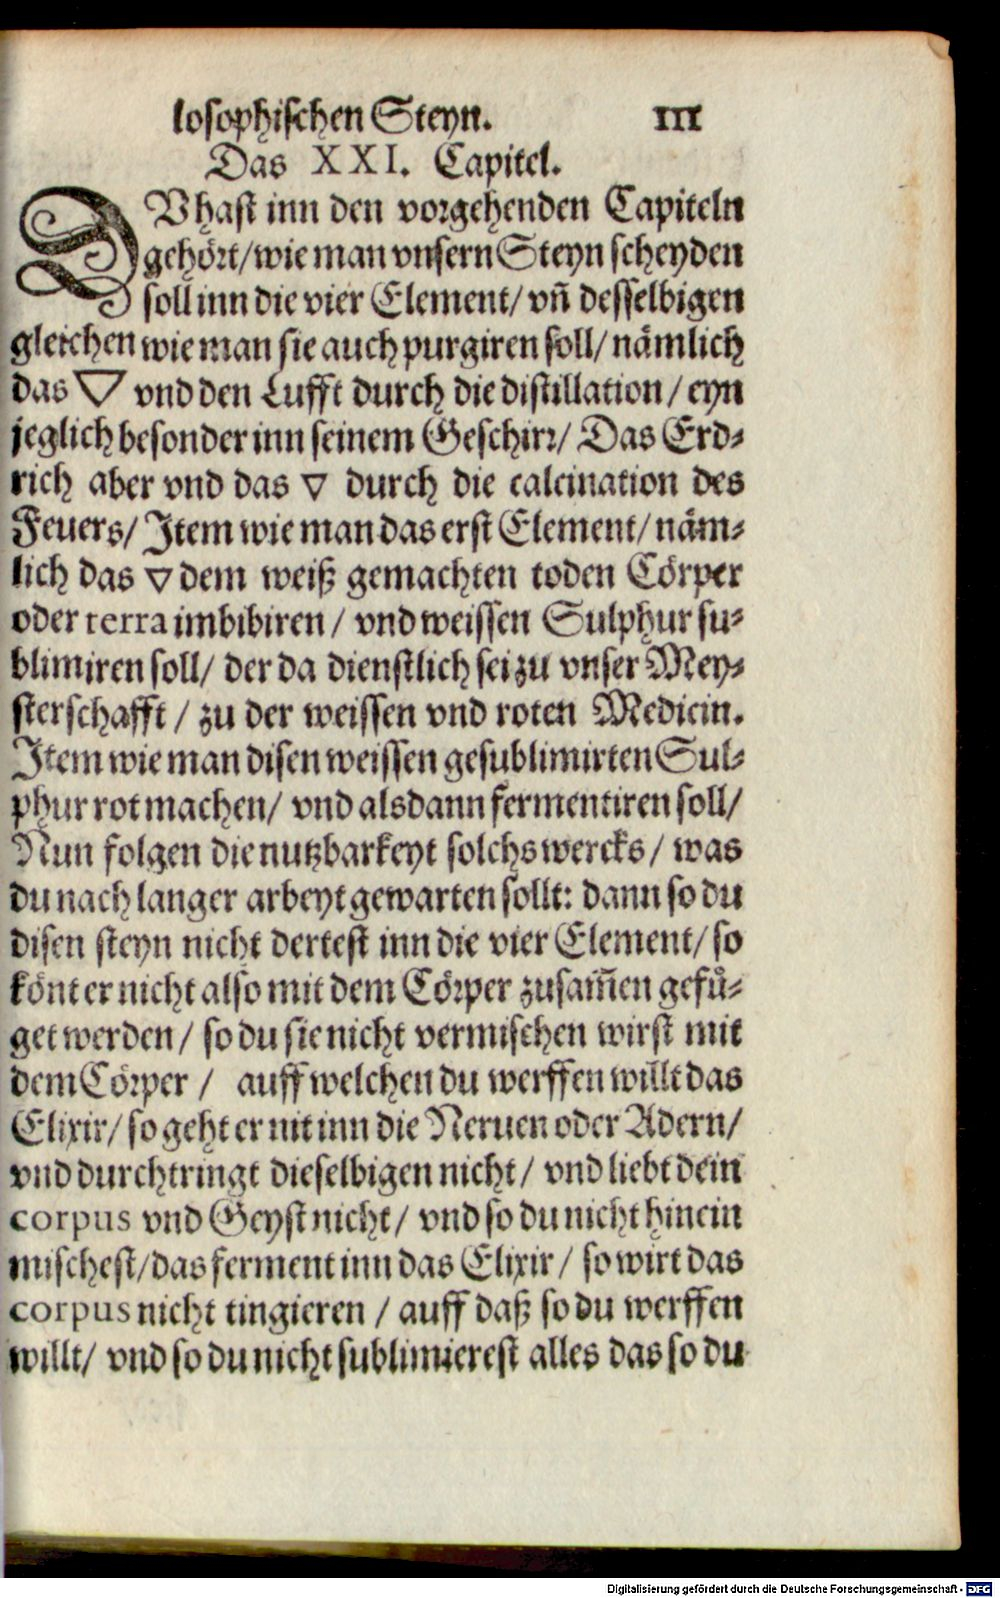 losophischen Steyn. 111
Das XXI. Capitel.
DVhast inn den vorgehenden Capiteln
gehört/wie man vnsern Steyn scheyden
soll inn die vier Element/ vñ desselbigen
gleichen wie man sie auch purgiren soll/ nämlich
das ▽ vnd den Lufft durch die distillation/ eyn
jeglich besonder inn seinem Geschirr/ Das Erd⸗
rich aber vnd das ▽ durch die calcination des
Feuers/ Item wie man das erst Element/ näm⸗
lich das ▽ dem weiß gemachten toden Cörper
oder terra imbibiren/ vnd weissen Sulphur su⸗
blimiren soll/ der da dienstlich sei zu vnser Mey⸗
sterschafft/ zu der weissen vnd roten Medicin.
Item wie man disen weissen gesublimirten Sul⸗
phur rot machen/ vnd alsdann fermentiren soll/
Nun folgen die nutzbarkeyt solchs wercks/ was
du nach langer arbeyt gewarten sollt: dann so du
disen steyn nicht dertest inn die vier Element/ so
könt er nicht also mit dem Cörper zusam̃en gefů⸗
get werden/ so du sie nicht vermischen wirst mit
dem Cörper/ auff welchen du werffen willt das
Elixir/ so geht er nit inn die Neruen oder Adern/
vnd durchtringt dieselbigen nicht/ vnd liebt dein
corpus vnd Geyst nicht/ vnd so du nicht hinein
mischest/das ferment inn das Elixir/ so wirt das
corpus nicht tingieren/ auff daß so du werffen
willt/ vnd so du nicht sublimierest alles das so du
Digitalisierung gefördert durch die Deutsche Forschungsgemeinschaft - DFG